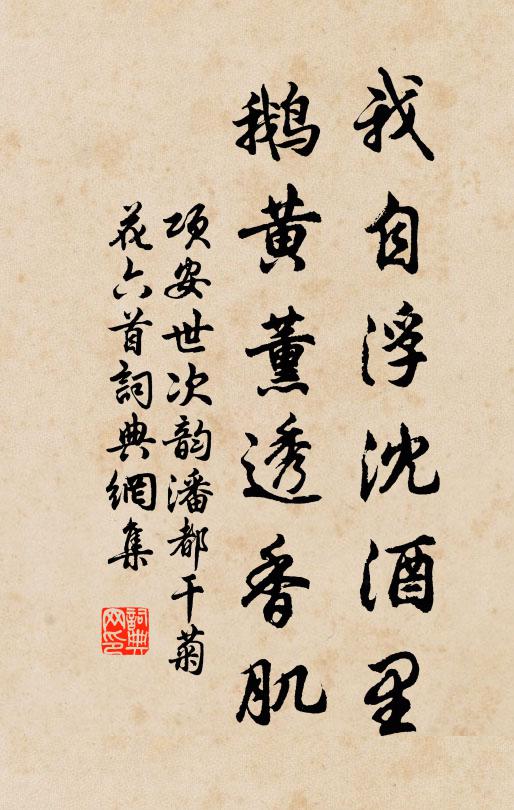 我自浮沈酒里
鹅黄薰透香肌
项安世次韵潘都干菊
花六首詞典網集
詞典网印